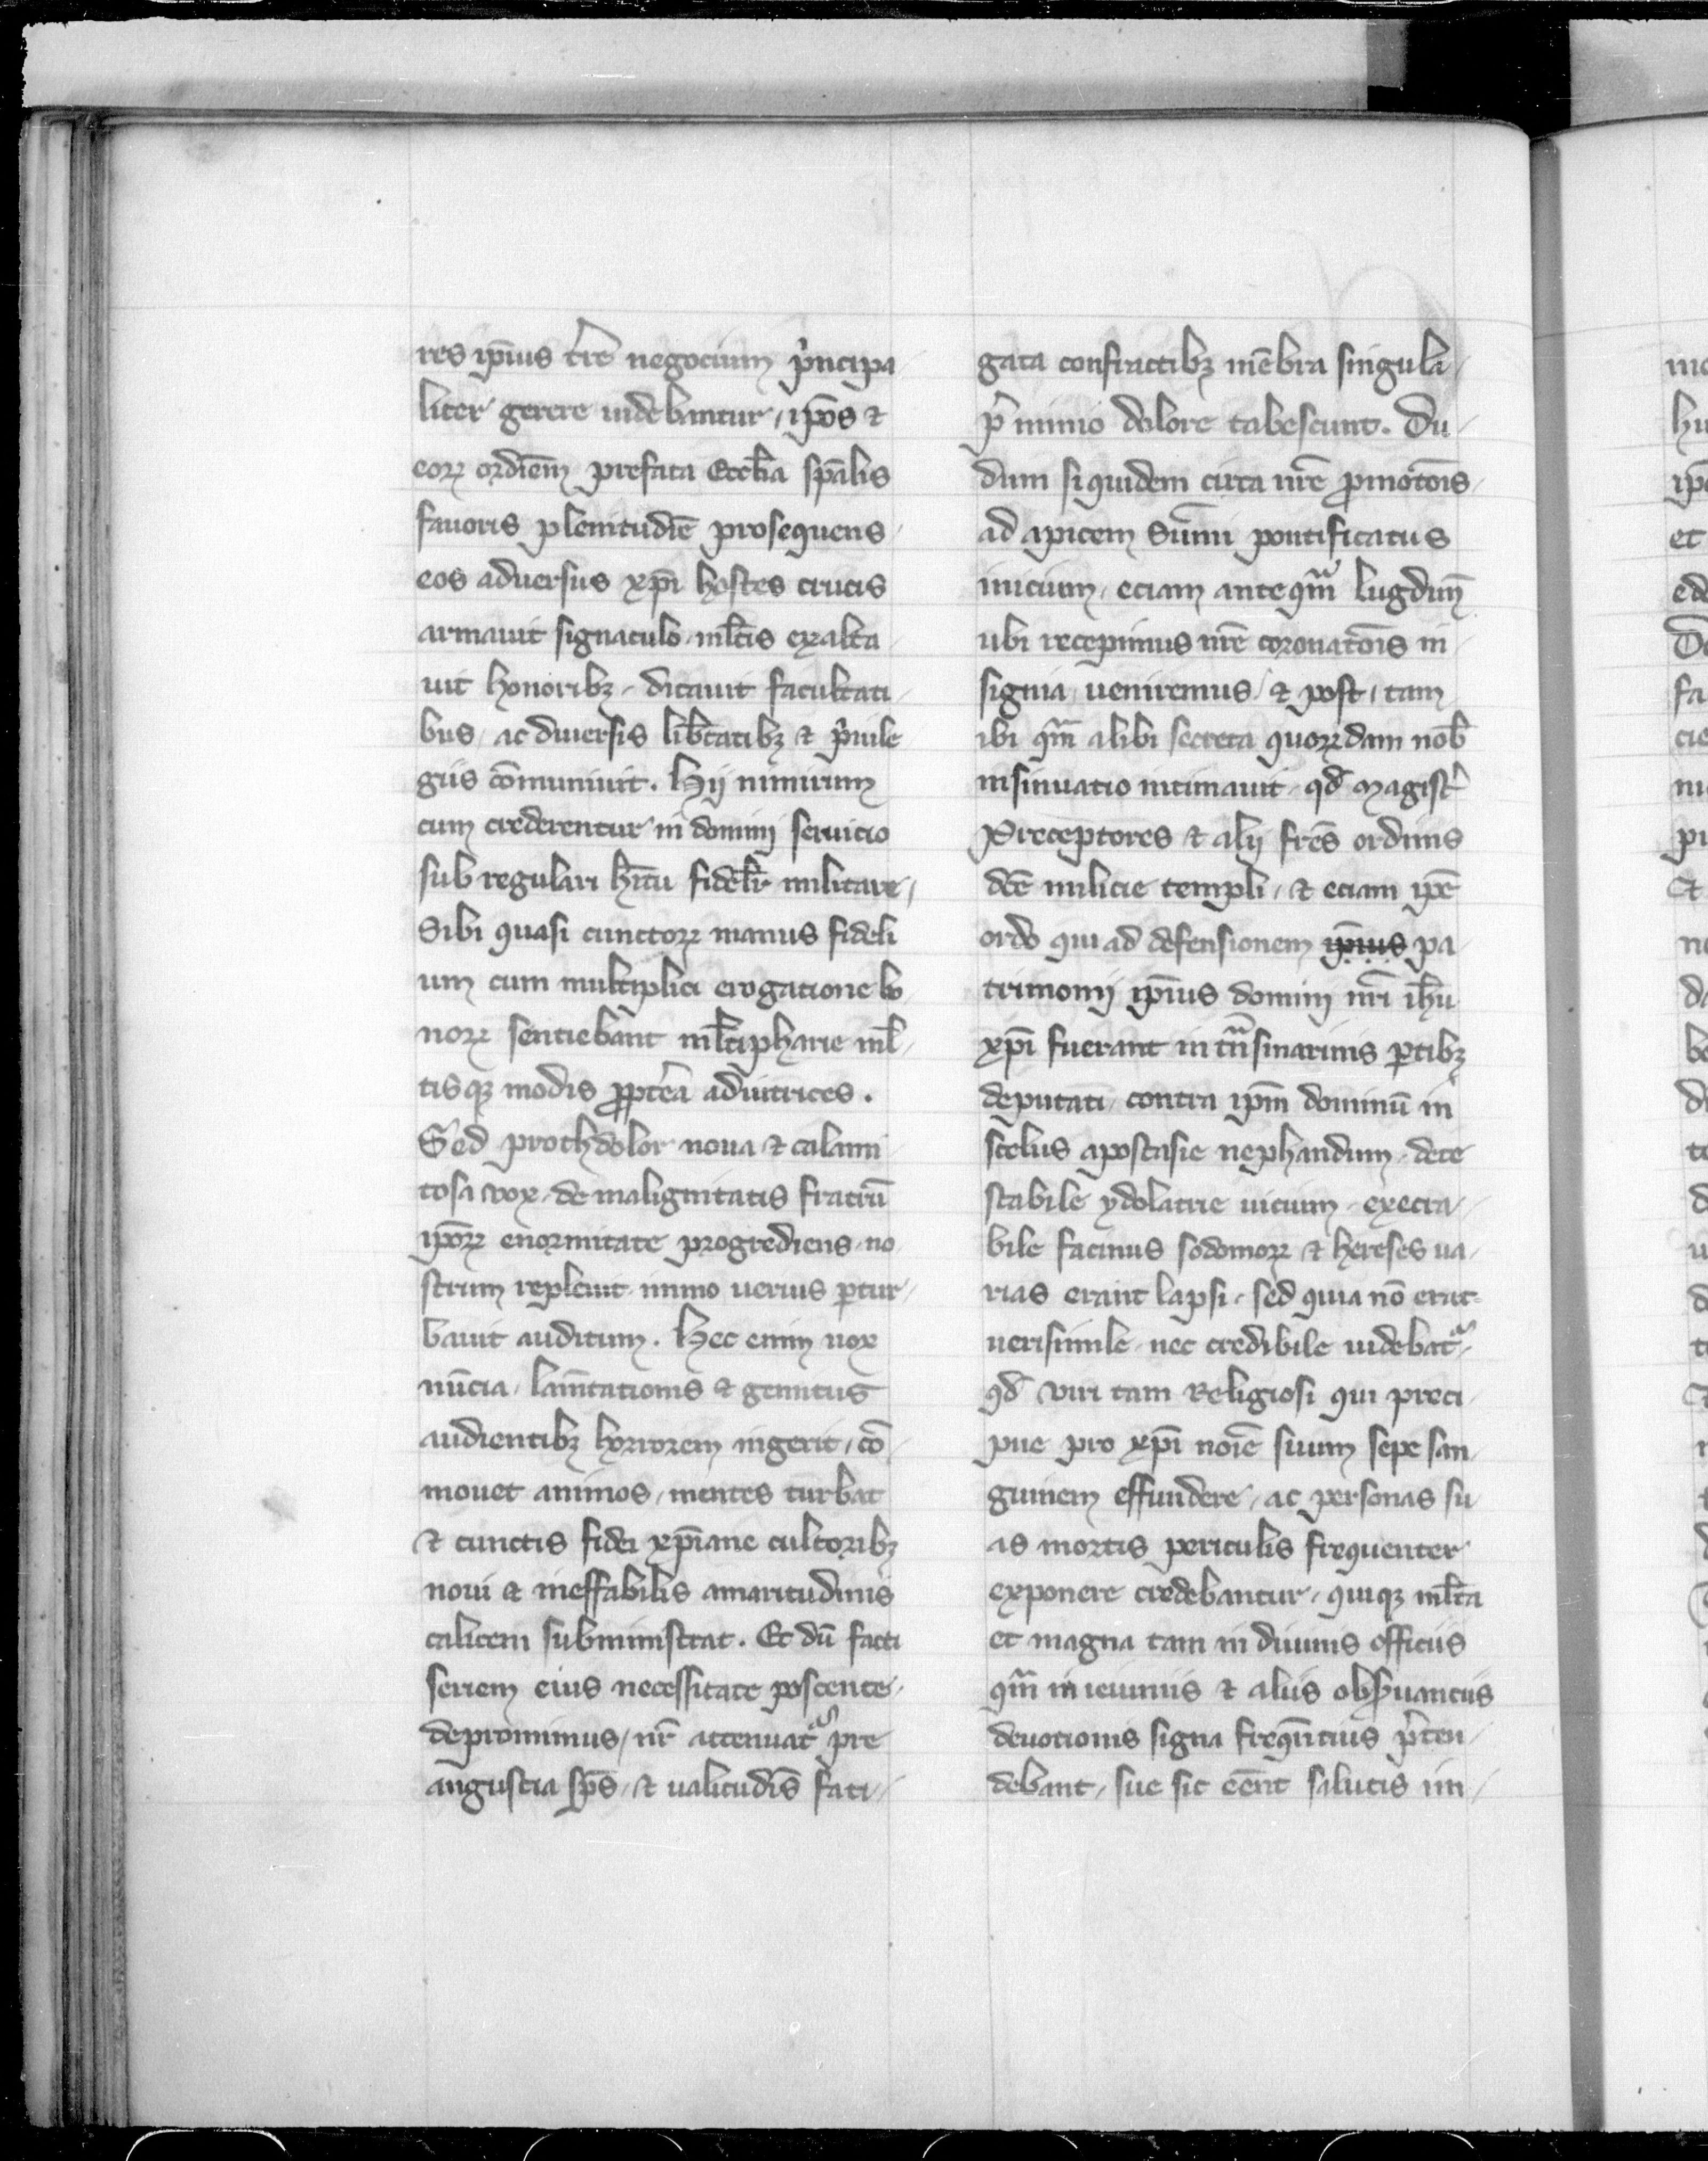 res ip̄ius tr̄re negocium p̍ncipa
liter gerere uidebantur / ip̄os ⁊
eoꝝ ordiēm prefata Eccl̄ia sp̄alis
fauoris plenitudīe prosequens
eos aduersus xp̄i hostes crucis
armauit signaculo ml̄tis exalta
uit honoribꝫ ditauit facultati
bus / ac diuersis lib̄tatibꝫ ⁊ p̍uile
giis cōmuniuit. Hij nimirum
cum crederentur in dominj seruicio
sub regulari h̄itu fidel̄r militare /
Sibi quasi cunctoꝝ manus fideli
um cum multiplici erogacione bo
noꝝ sentiebant ml̄tipharie ml̄
tisqꝫ modis ꝓpterea adiutrices.
Sed proth dolor noua ⁊ calami
tosa vox de malignitatis fratrū
ip̄oꝝ enormitate progrediens no
strum repleuit immo uerius ꝑtur
bauit auditum. Hec enim vox
nūcia / lam̄tationis ⁊ gemitus
audientibꝫ horrorem ingerit / cō
mouet animos / mentes turbat
⁊ cunctis fidei xp̄iane cultoribꝫ
noui ⁊ ineffabilis amaritudinis
calicem subministrat. Et dū facti
seriem eius necessitate poscente
depromimus / nr̄ attenuat᷑ pre
angustia sp̄s / ⁊ ualitudīs fati
gata confractibꝫ mēbra singula
p̍ nimio dolore tabescunt. Du
dum siquidem circa nr̄e ꝓmotōis
ad apicem Sūmi pontificatus
inicium / eciam anteqm̄ Lugdun̄
ubi recepimus nr̄e coronatōis in
signia / ueniremus / ⁊ post / tam
ibi qm̄ alibi secreta quoꝝdam nob̄
insinuatio intimauit qd̄ magist̍
Preceptores ⁊ alij fr̄es ordinis
dc̄e milicie templi / ⁊ eciam ip̄e
ordo qui ad defensionem ip̄ius pa
trimonij ip̄ius dominj nr̄i ih̄u
xp̄i fuerant in tn̄smarinis ꝑtibꝫ
deputati / contra ip̄m dominū in
scelus apostasie nephandum dete
stabile ydolatrie uicium execra
bile facinus sodomoꝝ ⁊ hereses ua
rias erant lapsi / sed quia nō erat
uerisimile nec credibile uidebat᷑
qd̄ viri tam Religiosi qui preci
pue pro xp̄i noīe suum sepe san
guinem effundere / ac personas su
as mortis periculis frequenter
exponere credebantur / quiqꝫ ml̄ta
et magna tam in diuinis officiis
qm̄ in ieiuniis ⁊ aliis obẜuanciis
deuotionis signa freqn̄tius p̍ten
debant / sue sic eēnt salutis im